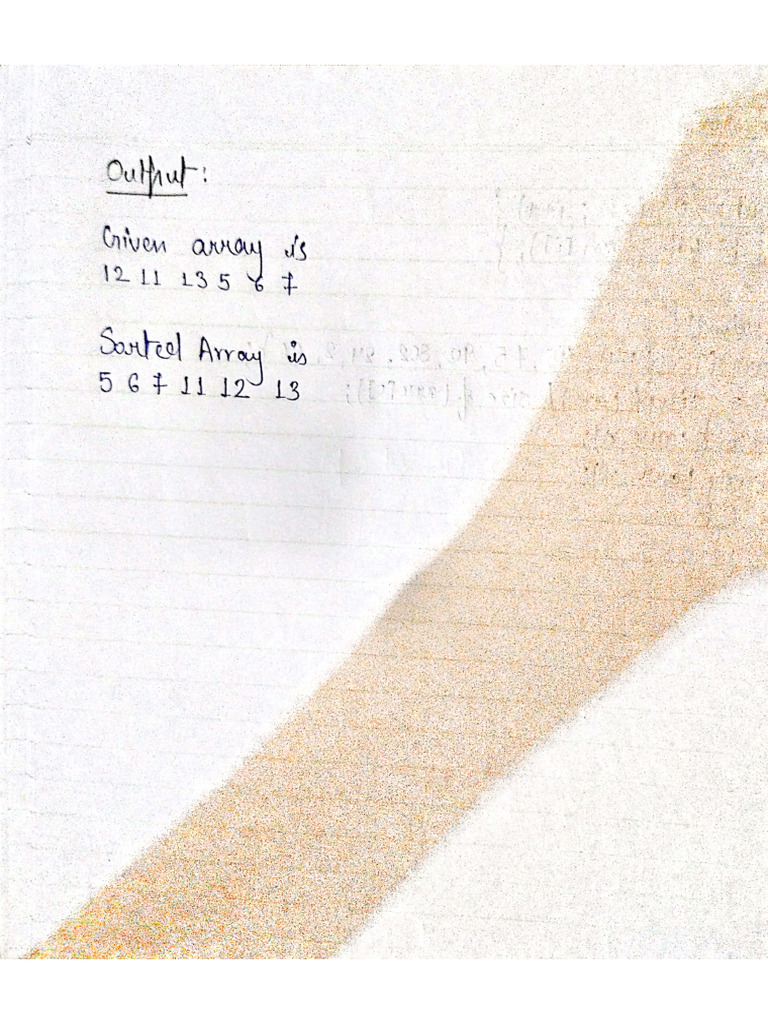 Output:
Given array is
12 11 13 5 6 7
Sorted Array is
5 6 7 11 12 13